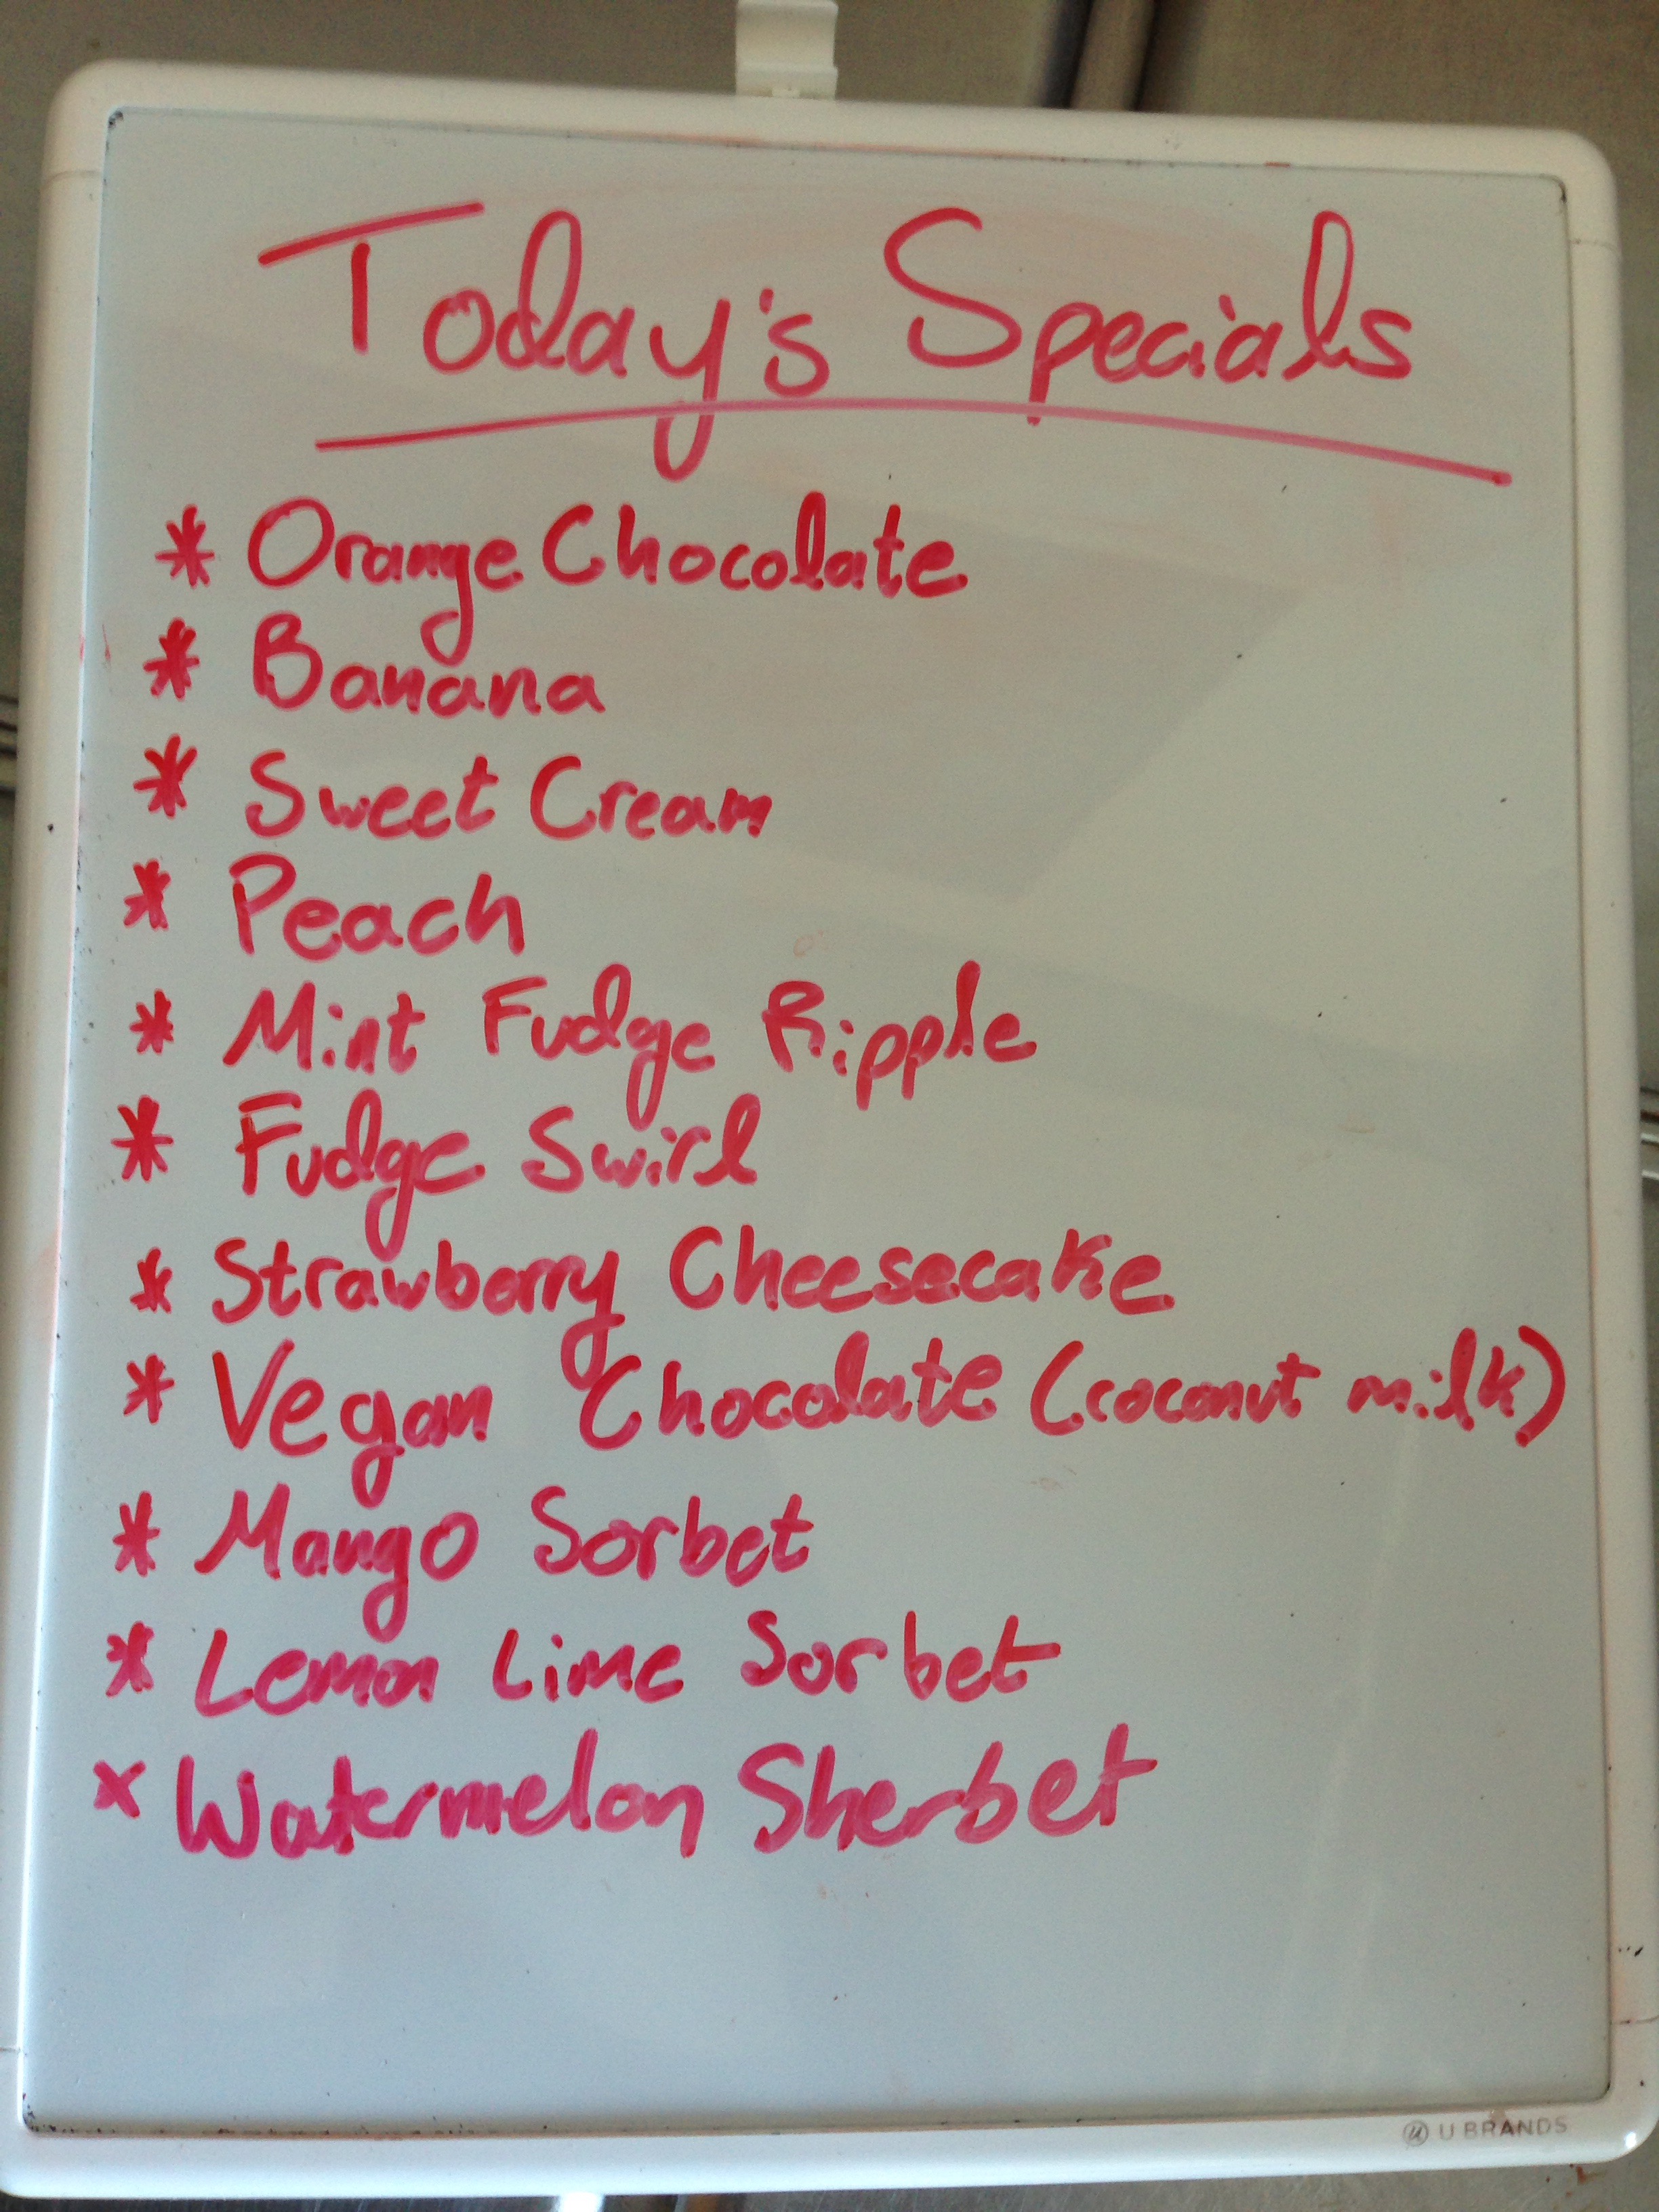 Today's Specials
* Orange Chocolate
* Banana
* Sweet Cream
* Peach
* Mint Fudge Ripple
* Fudge Swirl
* Strawberry Cheesecake
* Vegan Chocolate (coconut milk)
* Mango Sorbet
* Lemon Lime Sorbet
x Watermelon Sherbet
U BRANDS